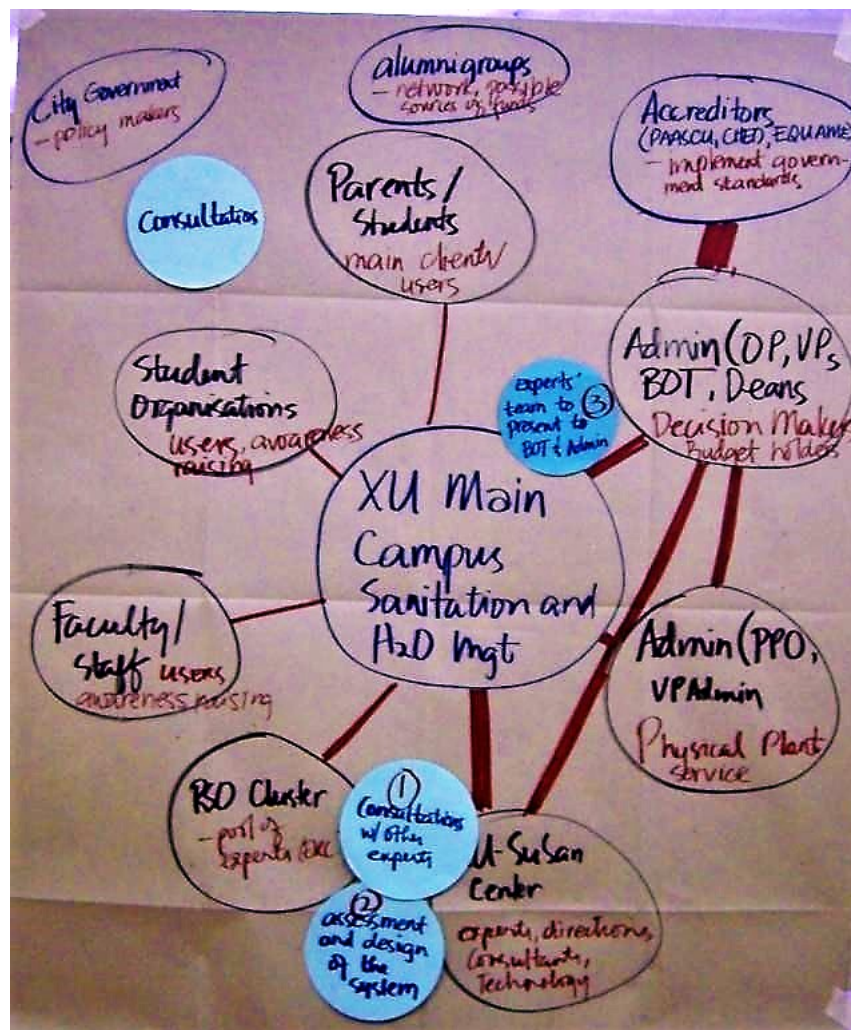 City Government
- policy makers
alumni groups
- network, possible
sources of funds
Accreditors
(PAASCU, CHED, EQUAME)
- implement govern-
ment standards
Consultation
Parents/
Students
main clients/
users
Student
Organisations
users, awareness
raising
experts'
team to ③
present to
BOT & Admin
Admin (OP, VPs,
BOT, Deans
Decision Makers
Budget holders
XU Main
Campus
Sanitation and
H2O Mgt
Faculty/
Staff users
awareness raising
Admin (PPO,
VP Admin
Physical Plant
Service
RSO Cluster
- pool of
experts
①
Consultations
w/ other
experts
②
assessment
and design
of the
system
SuSan
Center
experts, directions,
Consultants,
Technology